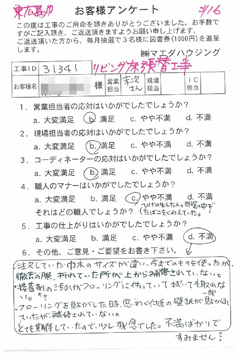 東広島
お客様アンケート
3/16
この度は工事のご用命を頂きありがとうございました。お手数で
すがご記入頂き、ご返送頂きますようお願い申し上げます。
ご返送頂いた方から、毎月抽選で3名様に図書券(1000円)を進呈
します。
㈱マエダハウジング
工事ID 31341 リビング床張替工事
お客様名 様 営業担当 さん 現場担当 IC担当
1. 営業担当者の応対はいかがでしたでしょうか?
a. 大変満足 b. 満足 c. やや不満 d. 不満
2. 現場担当者の応対はいかがでしたでしょうか?
a. 大変満足 b. 満足 c. やや不満 d. 不満
3. コーディネーターの応対はいかがでしたでしょうか?
a. 大変満足 b. 満足 c. やや不満 d. 不満
4. 職人のマナーはいかがでしたでしょうか?
a. 大変満足 b. 満足 c. やや不満 d. 不満
それはどの職人でしょうか?
5. 工事の仕上がりはいかがでしたでしょうか?
a. 大変満足 b. 満足 c. やや不満 d. 不満
6. その他、ご意見・ご要望をお書き下さい。
注文していた巾木のサイズが違い、今までのを使ったが、
撤去の際、折れていた所が上から補修されていない。
・接着剤のようなのがフローリングに付いていて拭いても取れない。
・フローリングを剥がした時、思わぬ付近の壁紙が剥がれ
ていたが補修されていない。
とても期待していたので少し残念でした。不満ばかりで
すみません。